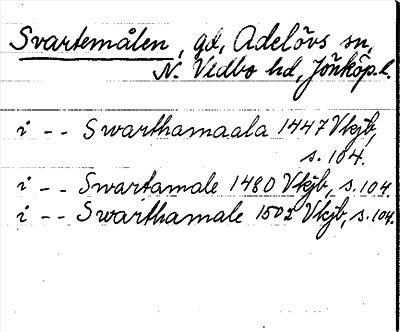 Svartemålen, gd, Adelövs sn,
N. Vedbo hd, Jönköp. l.
i -- Swarthamaala 1447 Vkjb,
s. 104.
i -- Swartamale 1480 Vkjb, s. 104.
i -- Swarthamale 1502 Vkjb, s. 104.